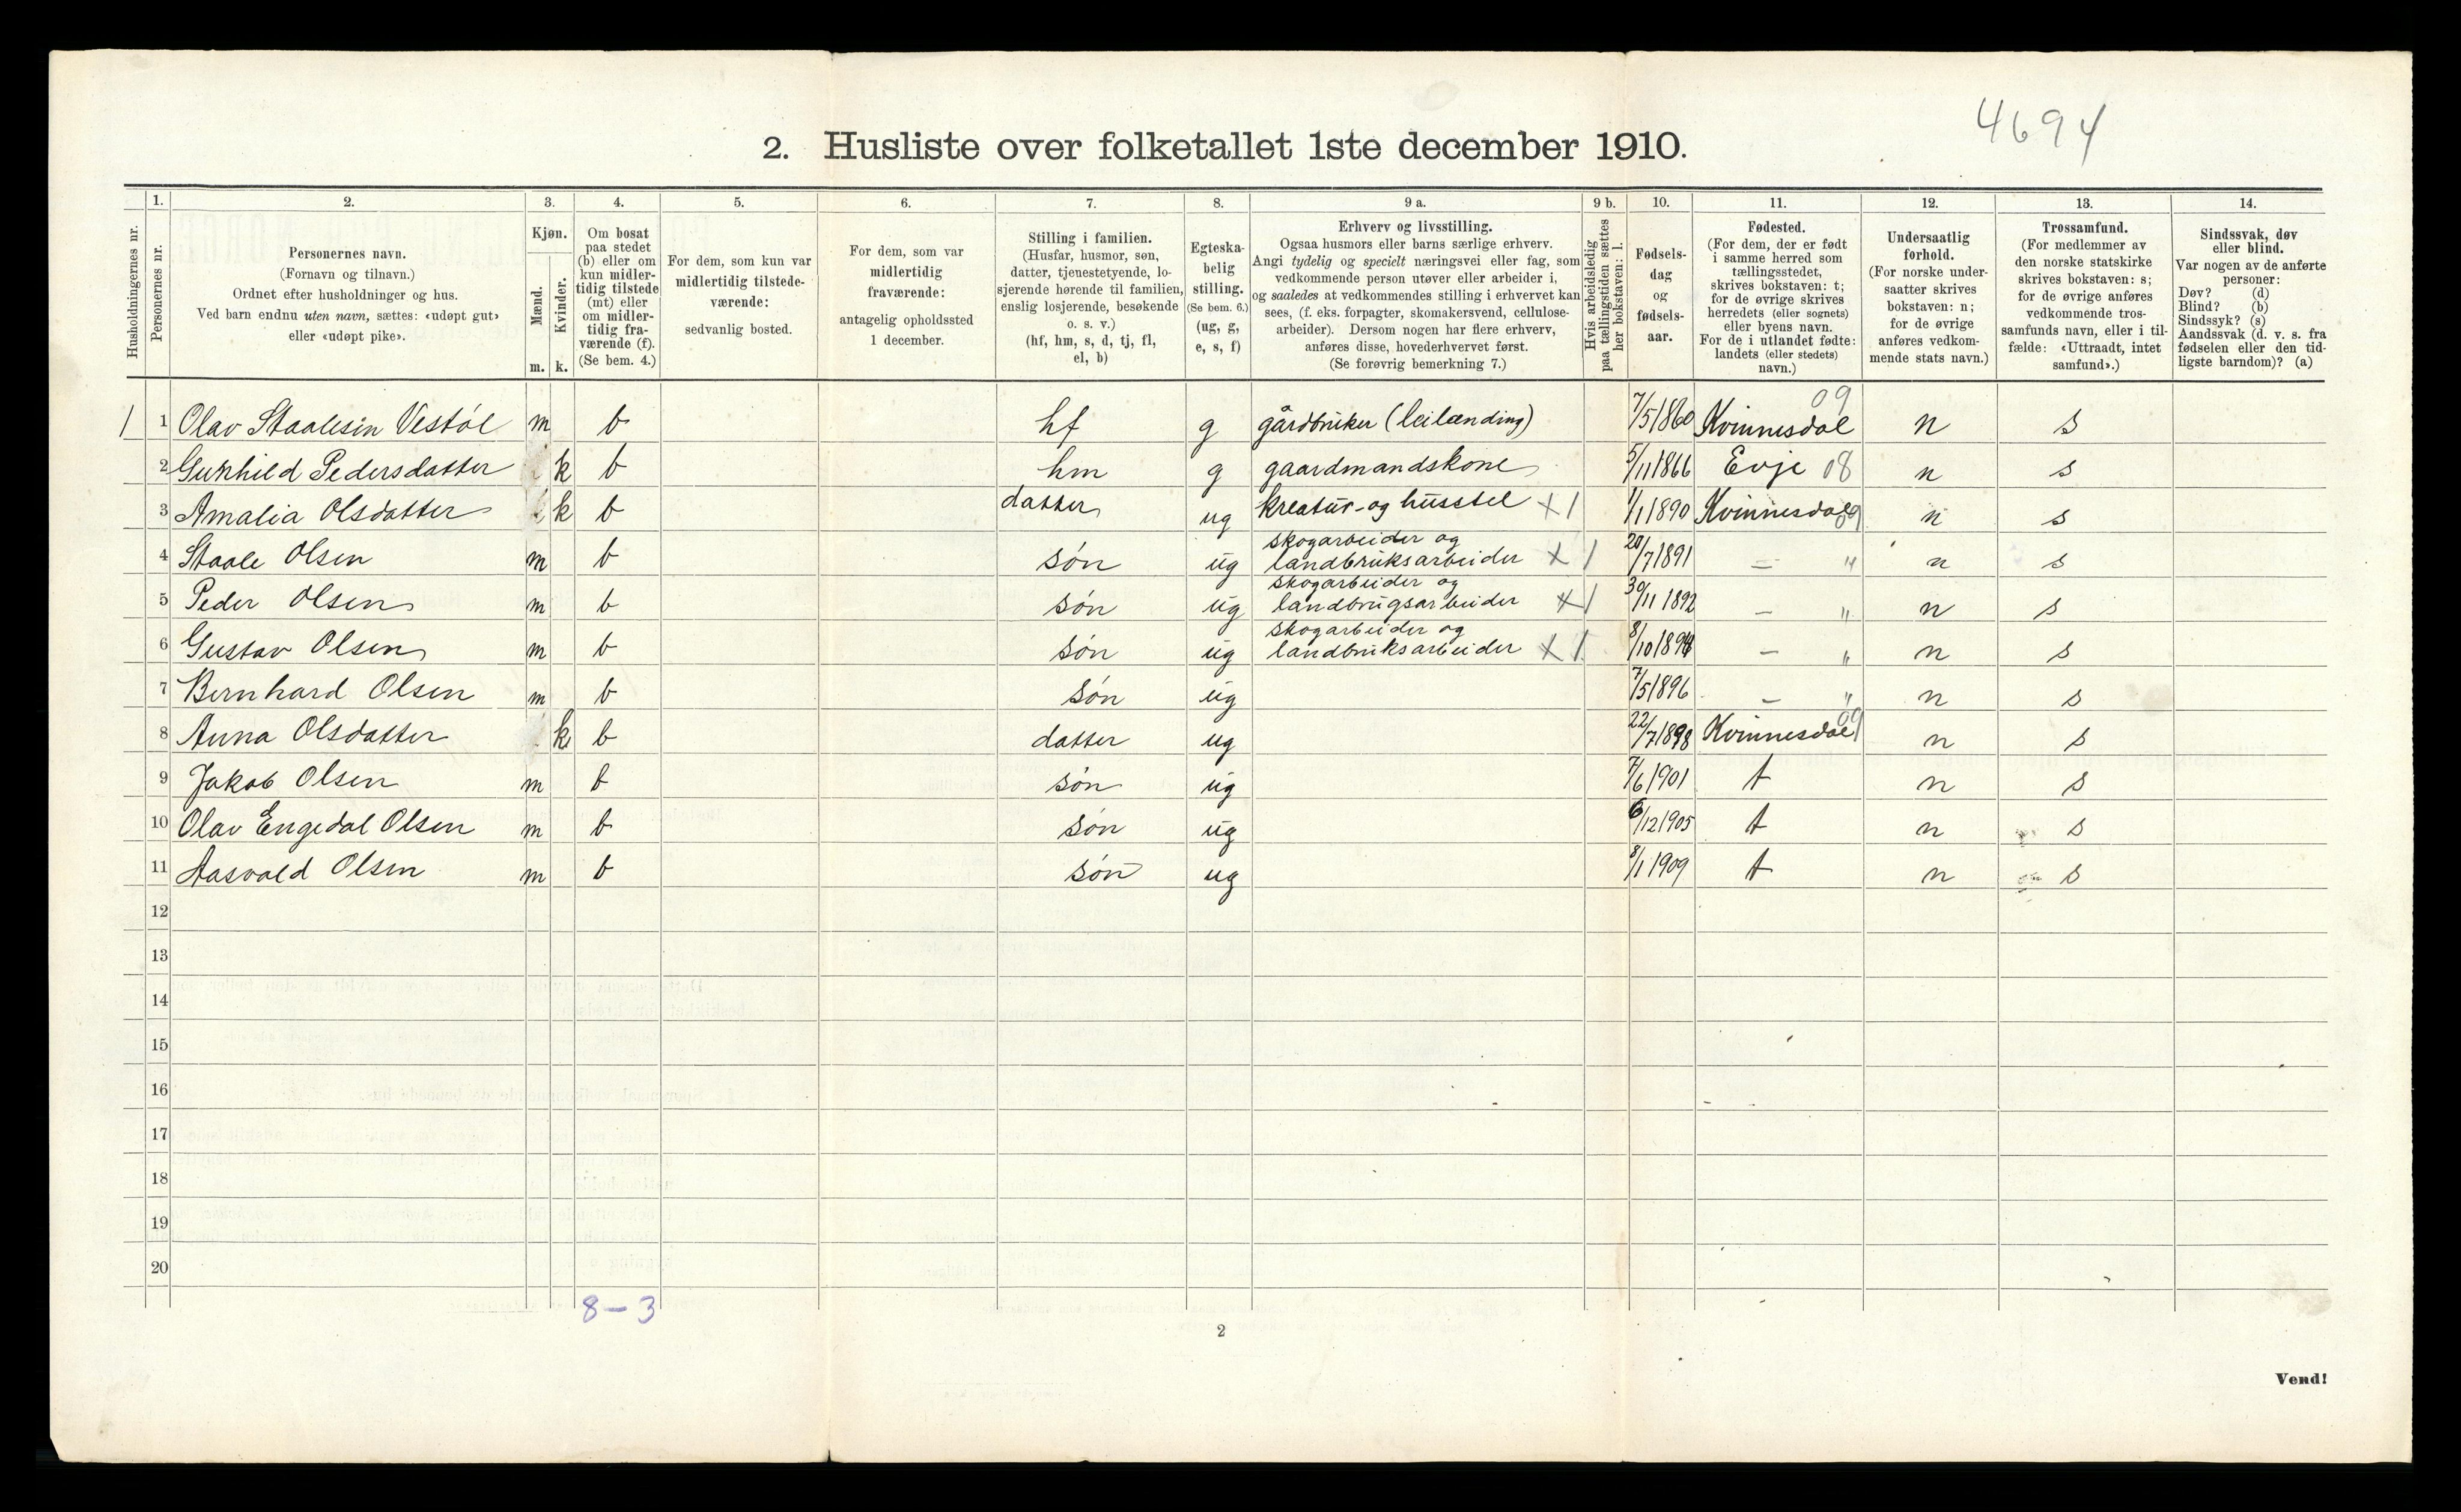 4694
2. Husliste over folketallet 1ste december 1910.
1. 2. 3. 4. 5. 6. 7. 8. 9 a. 9 b. 10. 11. 12. 13. 14.
Husholdningernes nr.
Personernes nr.
Personernes navn.
(Fornavn og tilnavn.)
Ordnet efter husholdninger og hus.
Ved barn endnu uten navn, sættes: «udøpt gut»
eller «udøpt pike».
Kjøn.
Mænd.
Kvinder.
m. k.
Om bosat
paa stedet
(b) eller om
kun midler-
tidig tilstede
(mt) eller
om midler-
tidig fra-
værende (f).
(Se bem. 4.)
For dem, som kun var
midlertidig tilstede-
værende:
sedvanlig bosted.
For dem, som var
midlertidig
fraværende:
antagelig opholdssted
1 december.
Stilling i familien.
(Husfar, husmor, søn,
datter, tjenestetyende, lo-
sjerende hørende til familien,
enslig losjerende, besøkende
o. s. v.)
(hf, hm, s, d, tj, fl,
el, b)
Egteska-
belig
stilling.
(Se bem. 6.)
(ug, g,
e, s, f)
Erhverv og livsstilling.
Ogsaa husmors eller barns særlige erhverv.
Angi tydelig og specielt næringsvei eller fag, som
vedkommende person utøver eller arbeider i,
og saaledes at vedkommendes stilling i erhvervet kan
sees, (f. eks. forpagter, skomakersvend, cellulose-
arbeider). Dersom nogen har flere erhverv,
anføres disse, hovederhvervet først.
(Se forøvrig bemerkning 7.)
Hvis arbeidsledig
paa tællingstiden sættes
her bokstaven: l.
Fødsels-
dag
og
fødsels-
aar.
Fødested.
(For dem, der er født
i samme herred som
tællingsstedet,
skrives bokstaven: t;
for de øvrige skrives
herredets (eller sognets)
eller byens navn.
For de i utlandet fødte:
landets (eller stedets)
navn.)
Undersaatlig
forhold.
(For norske under-
saatter skrives
bokstaven: n;
for de øvrige
anføres vedkom-
mende stats navn.)
Trossamfund.
(For medlemmer av
den norske statskirke
skrives bokstaven: s;
for de øvrige anføres
vedkommende tros-
samfunds navn, eller i til-
fælde: «Uttraadt, intet
samfund».)
Sindssvak, døv
eller blind.
Var nogen av de anførte
personer:
Døv? (d)
Blind? (b)
Sindssyk? (s)
Aandssvak (d. v. s. fra
fødselen eller den tid-
ligste barndom)? (a)
1 1 Olav Staalesen Vestøl m b hf g gårdbruker (leilænding) 7/5 1860 Kvinnesdal 09 n s
2 Gunhild Pedersdatter k b hm g gaardmandskone 5/11 1866 Evje 08 n s
3 Amalia Olsdatter k b datter ug kreatur- og husstel X 1 1/1 1890 Kvinnesdal 09 n s
4 Staale Olsen m b søn ug skogarbeider og landbruksarbeider X 1 20/7 1891 — " n s
5 Peder Olsen m b søn ug skogarbeider og landbrugsarbeider X 1 30/11 1892 — " n s
6 Gustav Olsen m b søn ug skogarbeider og landbruksarbeider X 1 8/10 1894 — " n s
7 Bernhard Olsen m b søn ug 7/5 1896 — " n s
8 Anna Olsdatter k b datter ug 22/7 1898 Kvinnesdal 09 n s
9 Jakob Olsen m b søn ug 7/6 1901 t n s
10 Olav Engedal Olsen m b søn ug 6/12 1905 t n s
11 Aasvald Olsen m b søn ug 8/1 1909 t n s
12
13
14
15
16
17
18
19
20
8 - 3
2
Vend!